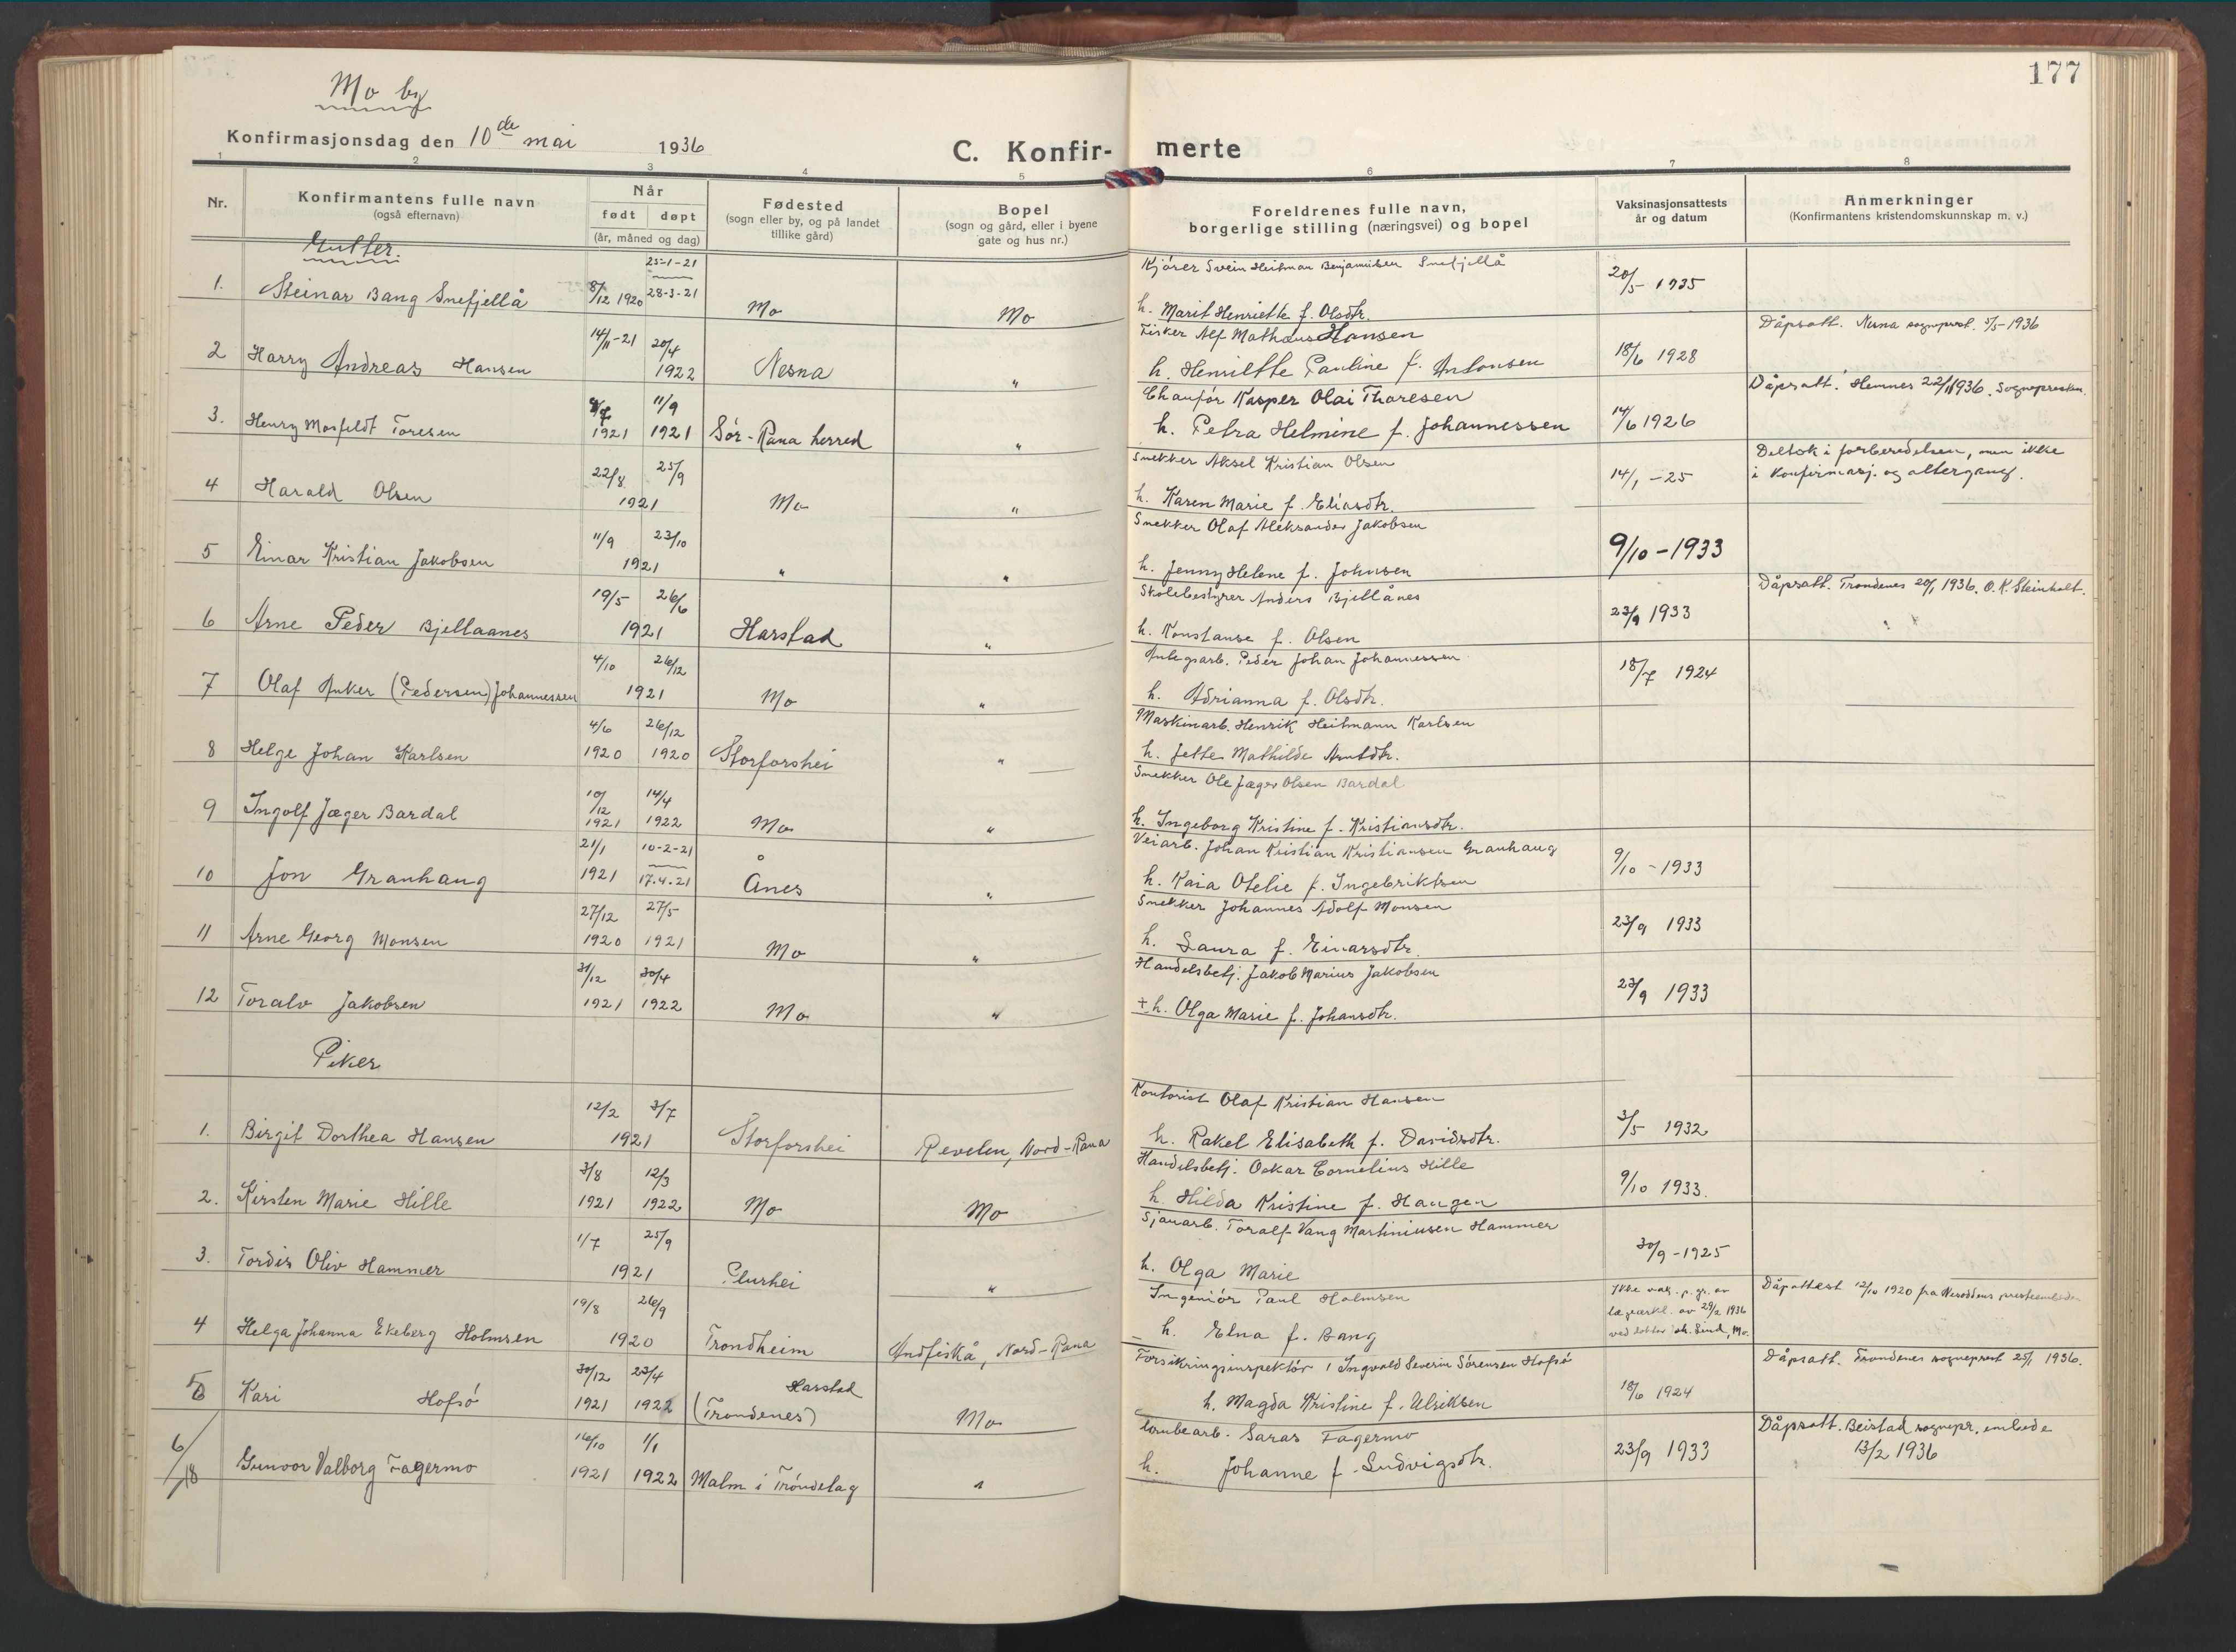 177
Mo by
Konfirmasjonsdag den 10de mai 1936
C. Konfirmerte
1 2 3 4 5 6 7 8
Nr. Konfirmantens fulle navn (også efternavn) Når født døpt (år, måned og dag) Fødested (sogn eller by, og på landet tillike gård) Bopel (sogn og gård, eller i byene gate og hus nr.) Foreldrenes fulle navn, borgerlige stilling (næringsvei) og bopel Vaksinasjonsattests år og datum Anmerkninger (Konfirmantens kristendomskunnskap m. v.)
Gutter.
1. Steinar Bang Snefjellå 8/12 1920 25-1-21 28-3-21 Mo Mo Kjører Svein Heitman Benjaminsen Snefjellå
h. Marit Henriette f. Olsdtr. 20/5 1935
2 Harry Andreas Hansen 14/11-21 20/4 1922 Nesna " Fisker Alf Mathæus Hansen
h. Henriette Pauline f. Antonsen 18/6 1928 Dåpsatt. Nesna sogneprest. 5/5-1936
3. Henry Mosfeldt Toresen 1921 11/9 1921 Sör-Rana herred " Chauför Kasper Olai Thoresen
h. Petra Helmine f. Johannessen 14/6 1926 Dåpsatt. Hemnes 22/1 1936. Sognepresten.
4 Harald Olsen 22/8 25/9 1921 Mo " Snekker Aksel Kristian Olsen
h. Karen Marie f. Eliasdtr. 14/1-25 Deltok i forberedelsen, men ikke
i Konfirmasj. og altergang.
5 Einar Kristian Jakobsen 11/9 23/10 1921 " " Snekker Olaf Aleksander Jakobsen
h. Jenny Helene f. Johnsen 9/10-1933
6 Arne Peder Bjellaanes 19/5 26/6 1921 Harstad " Skolebestyrer Anders Bjellånes
h. Konstanse f. Olsen 23/9 1933 Dåpsatt. Trondenes 20/1 1936. O. K. Steinholt.
7 Olaf Anker (Pedersen) Johannessen 4/10 26/12 1921 Mo " Anlegsarb. Peder Johan Johannessen
h. Adrianna f. Olsdtr. 18/7 1924
8 Helge Johan Karlsen 4/6 1920 26/12 1920 Storforshei " Maskinarb. Henrik Heitmann Karlsen
h. Jette Mathilde Arntdtr.
9 Ingolf Jæger Bardal 10/12 1921 14/4 1922 Mo " Snekker Ole Jæger Olsen Bardal
h. Ingeborg Kristine f. Kristiansdtr.
10 Jon Granhaug 21/1 1921 10-2-21 17.4.21 Ånes " Veiarb. Johan Kristian Kristiansen Granhaug
h. Kaia Otelie f. Ingebriktsen 9/10-1933
11 Arne Georg Monsen 27/12 1920 27/5 1921 Mo " Snekker Johannes Adolf Monsen
h. Laura f. Einarsdtr. 23/9 1933
12 Toralv Jakobsen 31/12 1921 30/4 1922 Mo " Handelsbetj. Jakob Marius Jakobsen
+ h. Olga Marie f. Johansdtr. 23/9 1933
Piker
1. Birgit Dorthea Hansen 12/2 3/7 1921 Storforshei Revelen, Nord-Rana Kontorist Olaf Kristian Hansen
h. Rakel Elisabeth f. Davidsdtr. 3/5 1932
2. Kirsten Marie Hille 3/8 1921 12/3 1922 Mo Mo Handelsbetj. Oskar Cornelius Hille
h. Hilda Kristine f. Haugen 9/10 1933.
3. Tordis Oliv Hammer 1/7 25/9 1921 " Sjauarb. Toralf Vang Martiniusen Hammer
h. Olga Marie 30/9-1925
4 Helga Johanna Ekeberg Holmsen 19/8 26/9 1920 Trondheim Andfiskå, Nord-Rana Ingeniör Paul Holmsen
h. Elna f. Bang Ikke vaks. p. gr. av
lægeerkl. av 29/2 1936
ved doktor Lind, Mo. Dåpattest 12/10 1920 fra Nesoddens
5 Kari Hofsö 30/12 1921 23/4 1922 Harstad (Trondenes) Mo Forsikringsinspektör Ingvald Severin Sörensen Hofsö
h. Magda Kristine f. Ulriksen 18/6 1924 Dåpsatt. Trondenes sogneprest 25/1 1936.
6/18 Gunvor Valborg Fagermo 16/10 1921 1/1 1922 Malm i Tröndelag " Saras Fagermo
h. Johanne f. Ludvigsdtr. 23/9 1933 Dåpsatt. Beistad sognepr. embede
13/2 1936